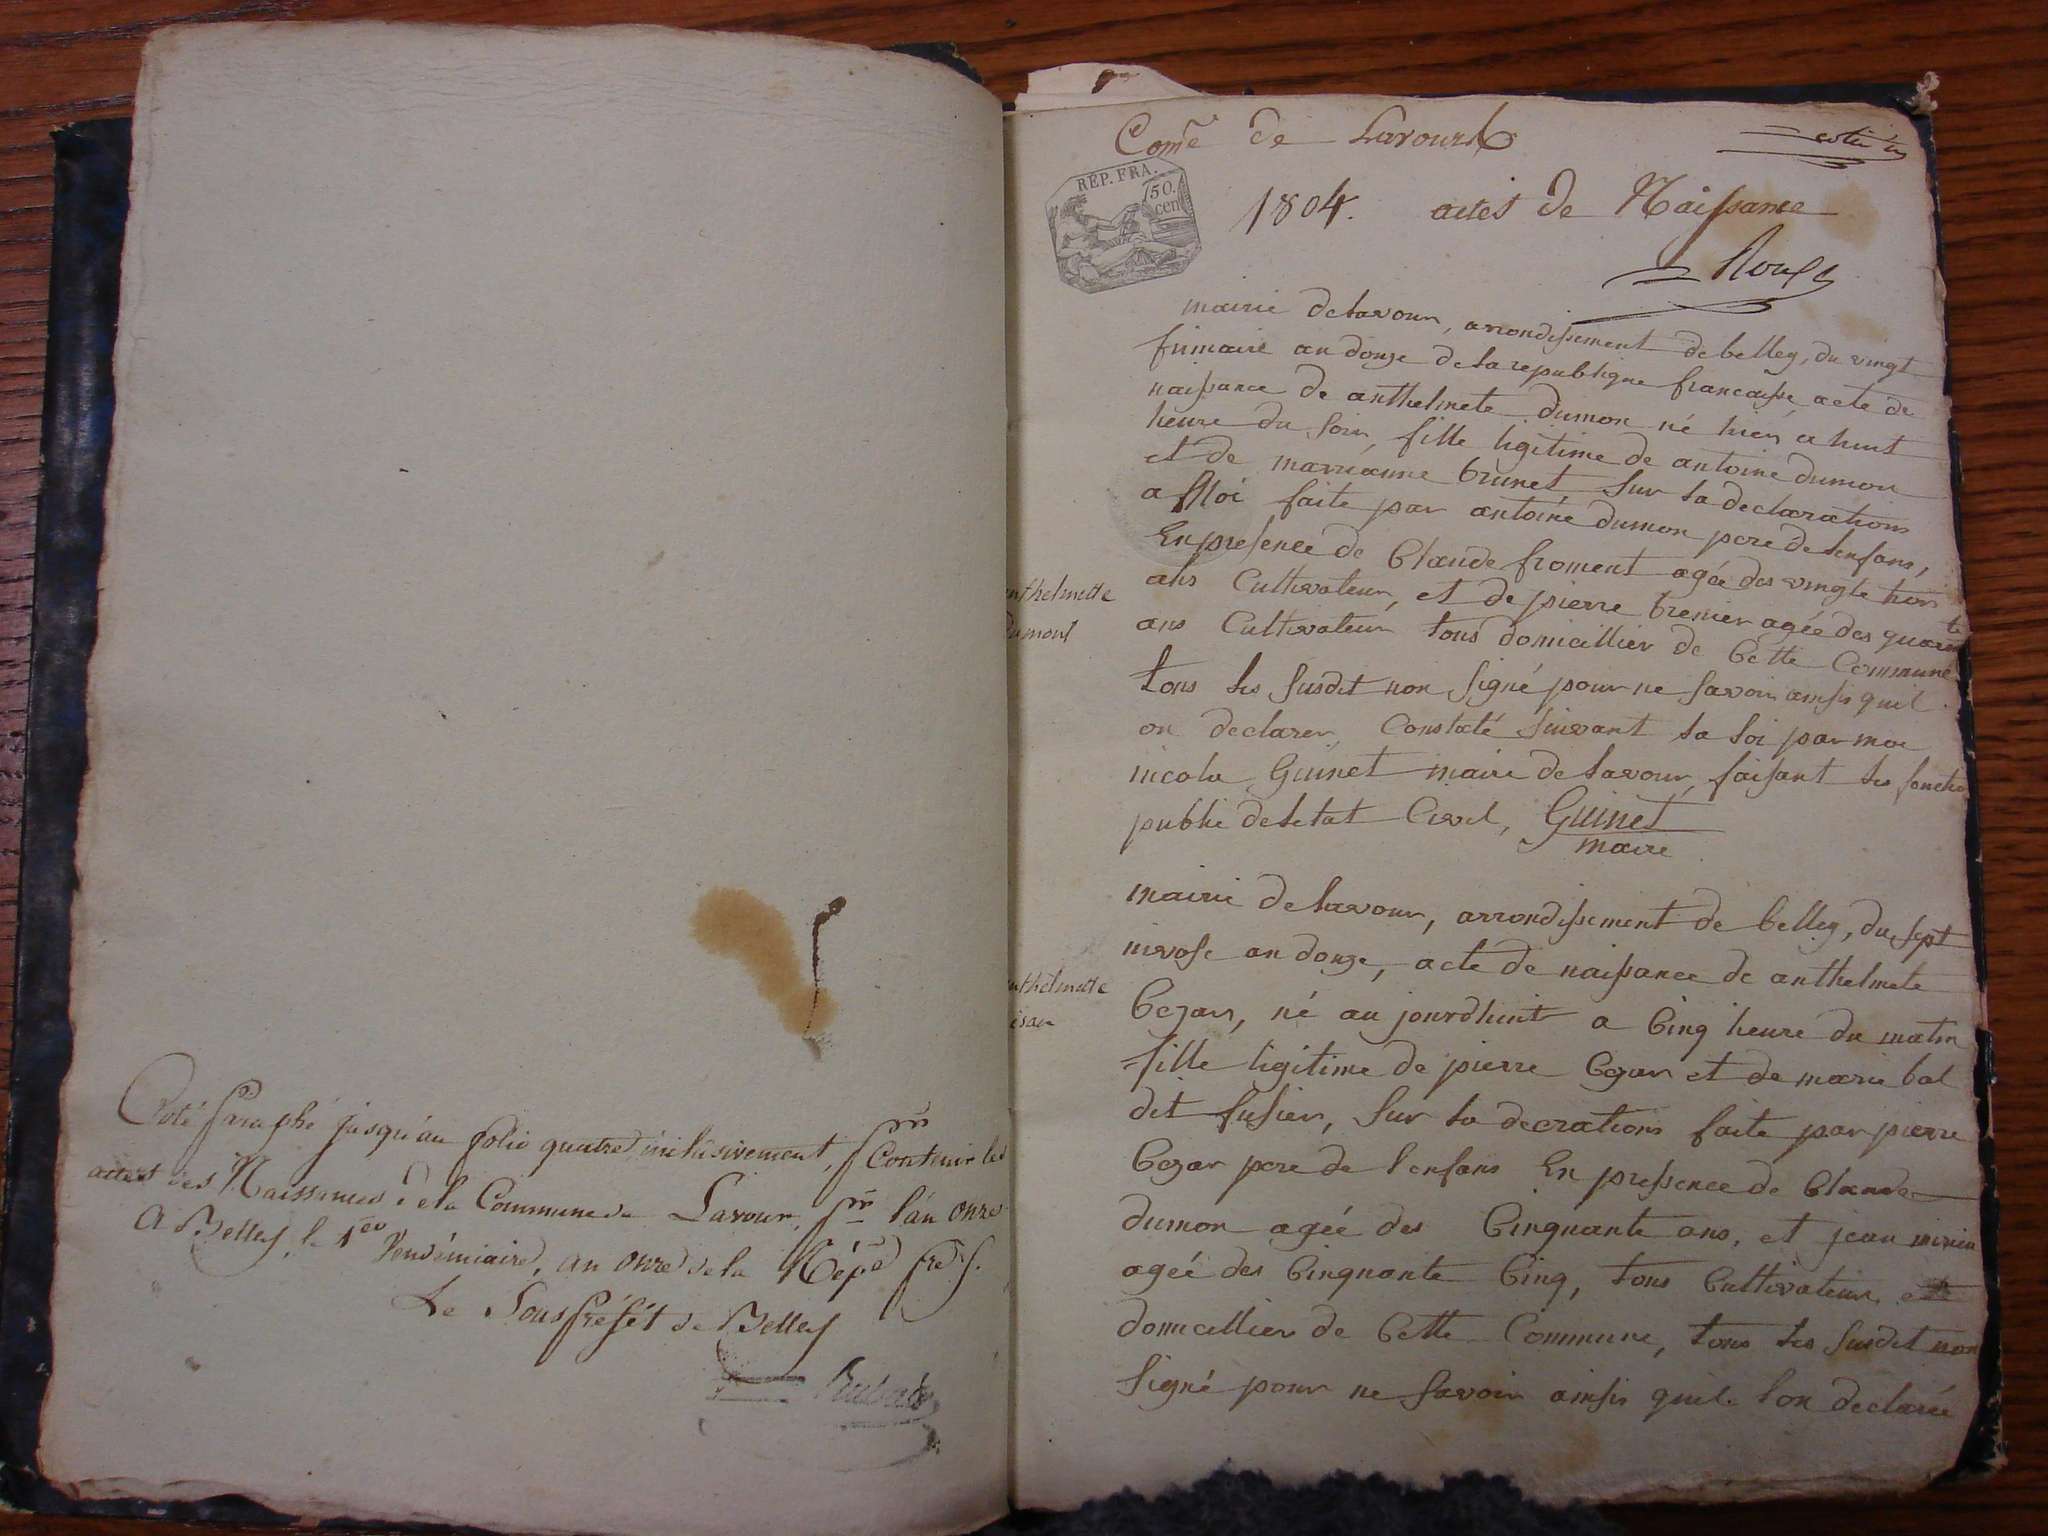 Coté Paraphé jusqu'au folio quatre inclusivement, pr Contenir les
actes des Naissances de la Commune de Lavour, pr l'an onze
A Belley, le 1er Vendémiaire, an onze de la Répe fre
Le Sousprefét de Belley
Come de Lavour
REP. FRA.
50.
cen
1804. actes de Naissance
mairie de Lavour, arrondissement de belley, du vingt
frimaire an douze de la republique francaisse acte de
naissance de anthelmete dumon né hier a huit
heure du soir, fille ligitime de antoine dumon
et de marrianne brunet sur la declaration
a Moi faite par antoine dumon pere de lenfans,
En presence de Claude froment agée des vingte
ans Cultivateur, et de pierre brenier agée des quarente
ans Cultivateur tous domicillier de Cette Commune
tous les susdit non signé pour ne savoir ainsis quil
on declarer, Constaté suivant la loi par moi
nicola Guinet maire de lavour, faisant les fonctio
public de letat Civil, Guinet
maire
anthelmette
Dumont
mairie de lavour, arrondissement de belley, du sept
nivose an douze, acte de naissance de anthelmete
Cezar, né au jourdhuit a Cinq heure du matin
fille ligitime de pierre Cezar et de marie bal
dit fusier, sur la decration faite par pierre
Cezar pere de lenfans En pressence de Claude
dumon agée des Cinquante ans, et jean
agée des Cinquante Cinq, tous Cultivateur
domicillier de Cette Commune, tous les susdit non
signé pour ne savoir ainsis quil lon declarée
anthelmette